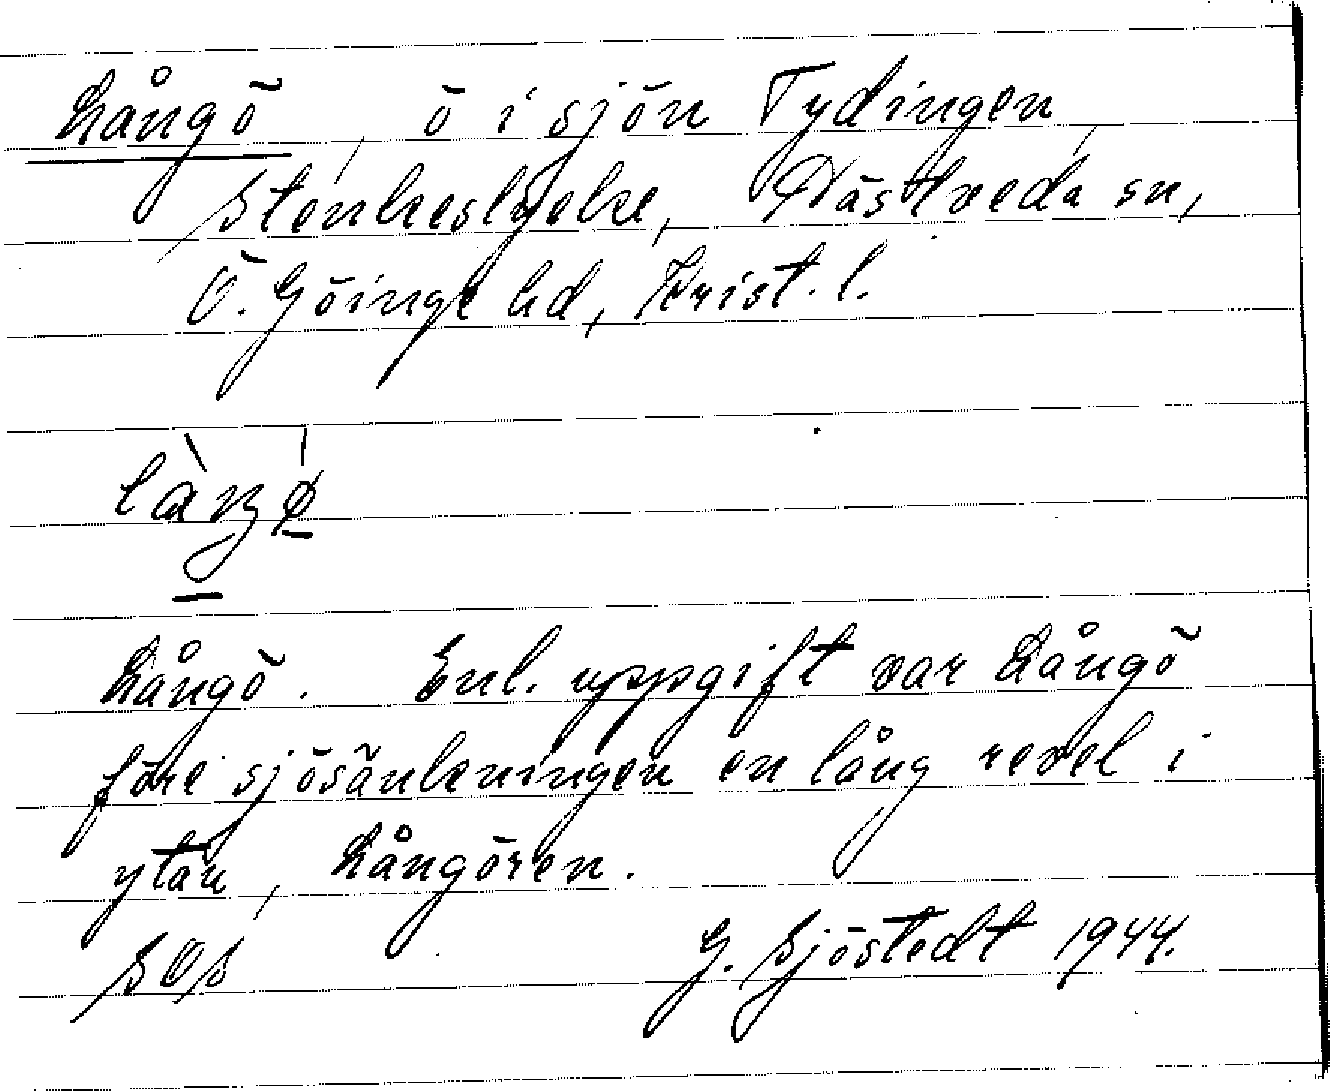 Långö, ö i sjön Tydingen,
Stenkeslyeke, Västveda sn,
Ö. Göinge hd, Krist. l.
Långö. Enl. uppgift var Långö
före sjösänkningen en lång revel i
ytan, Långören.
SOS G. Sjöstedt 1944.